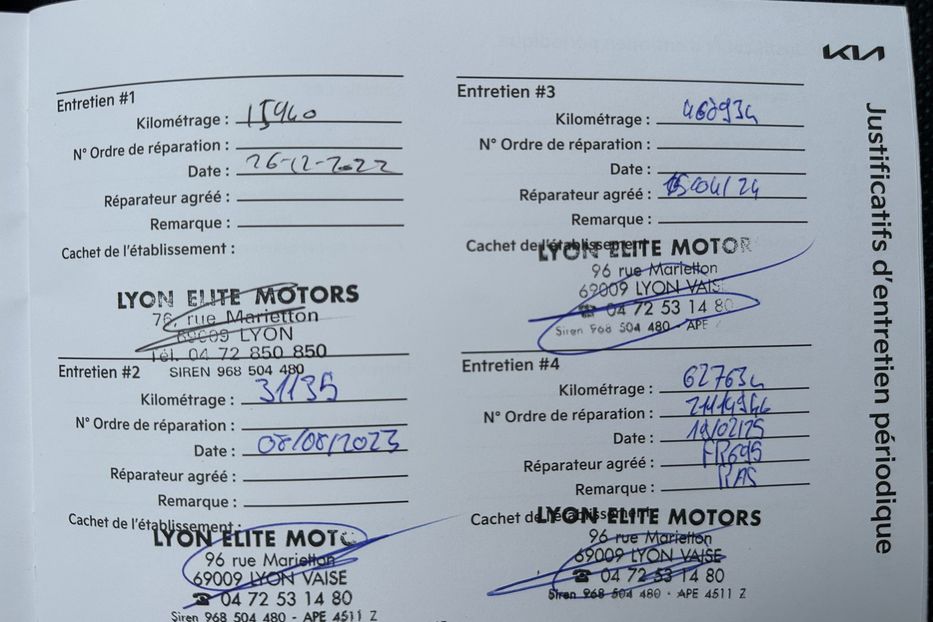 KIA
Justificatifs d'entretien périodique
Entretien #1
Kilométrage : 15940
N° Ordre de réparation :
Date : 26-12-2022
Réparateur agréé :
Remarque :
Cachet de l'établissement :
LYON ELITE MOTORS
76, rue Marietton
69009 LYON
Tél. 04 72 850 850
SIREN 968 504 480
Entretien #2
Kilométrage : 31135
N° Ordre de réparation :
Date : 08/08/2023
Réparateur agréé :
Remarque :
Cachet de l'établissement :
LYON ELITE MOTO
96 rue Marietton
69009 LYON VAISE
☎ 04 72 53 14 80
Siren 968 504 480 - APE 4511 Z
Entretien #3
Kilométrage :
N° Ordre de réparation :
Date :
Réparateur agréé : 15/04/24
Remarque :
Cachet de l'établissement
LYON ELITE MOTOR
96 rue Marietton
69009 LYON VAISE
☎ 04 72 53 14 80
Siren 968 504 480 - APE
Entretien #4
Kilométrage : 62763
N° Ordre de réparation :
Date : 19/02/25
Réparateur agréé : FR695
Remarque : RAS
Cachet de l'établissement
LYON ELITE MOTORS
96 rue Marietton
69009 LYON VAISE
☎ 04 72 53 14 80
Siren 968 504 480 - APE 4511 Z